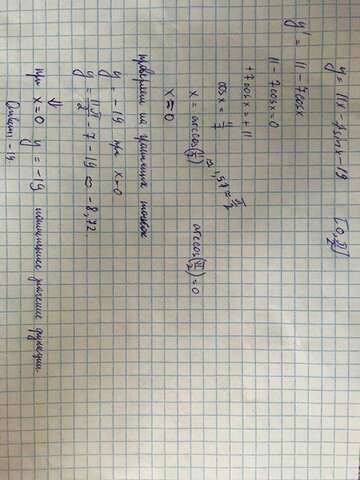 y = 11x - 7sinx - 19 [0, π/2]
y' = 11 - 7cosx
11 - 7cosx = 0
+7cosx = +11
cosx = 11/7
x = arccos(11/7) ≈ 1,57 = π/2 arccos(11/7) = 0
x ≈ 0
проверяем на границах точках
y = -19 при x = 0
y = 11π/2 - 7 - 19 ≈ -8,72
⇓
при x = 0 y = -19 наименьшее значение функции
Ответ: -19.